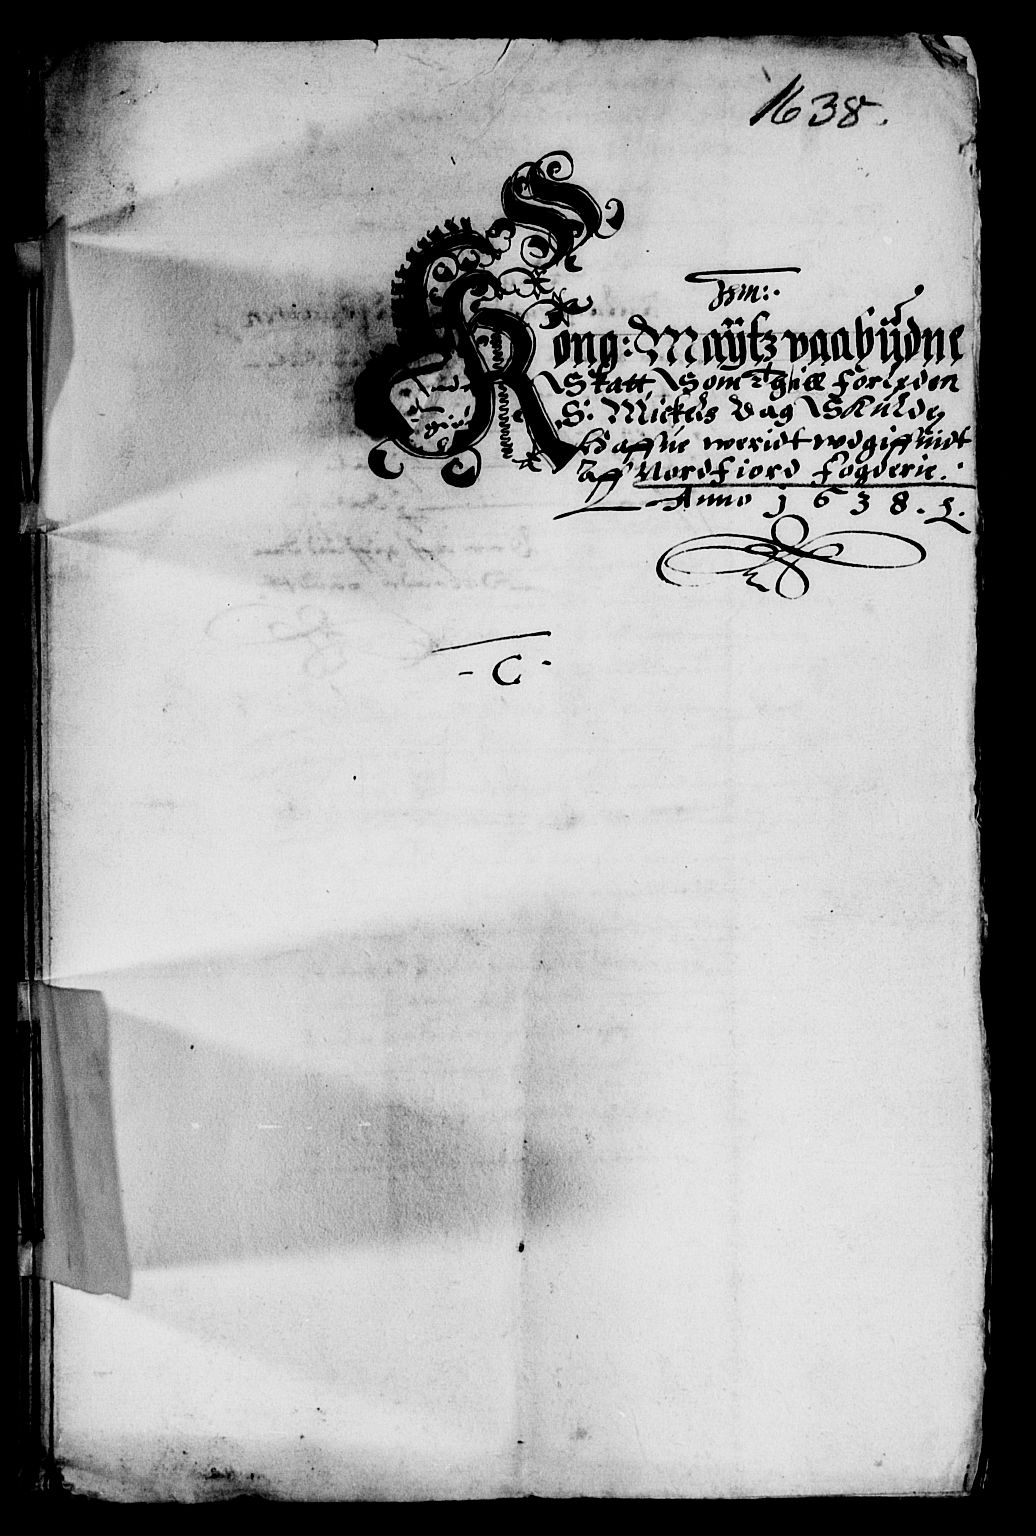 1638.
Kong: Maÿtz paabÿdne
Skatt Som Thill forleden
S: Mickels Dag Skulde
Haffue weridt wdgiffuidt
aff Nordfiord fogderie.
Anno 1638.
- C -